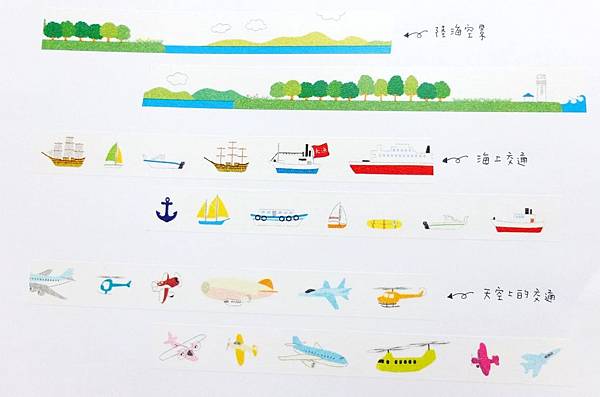 陸海空景
海上交通
天空上的交通